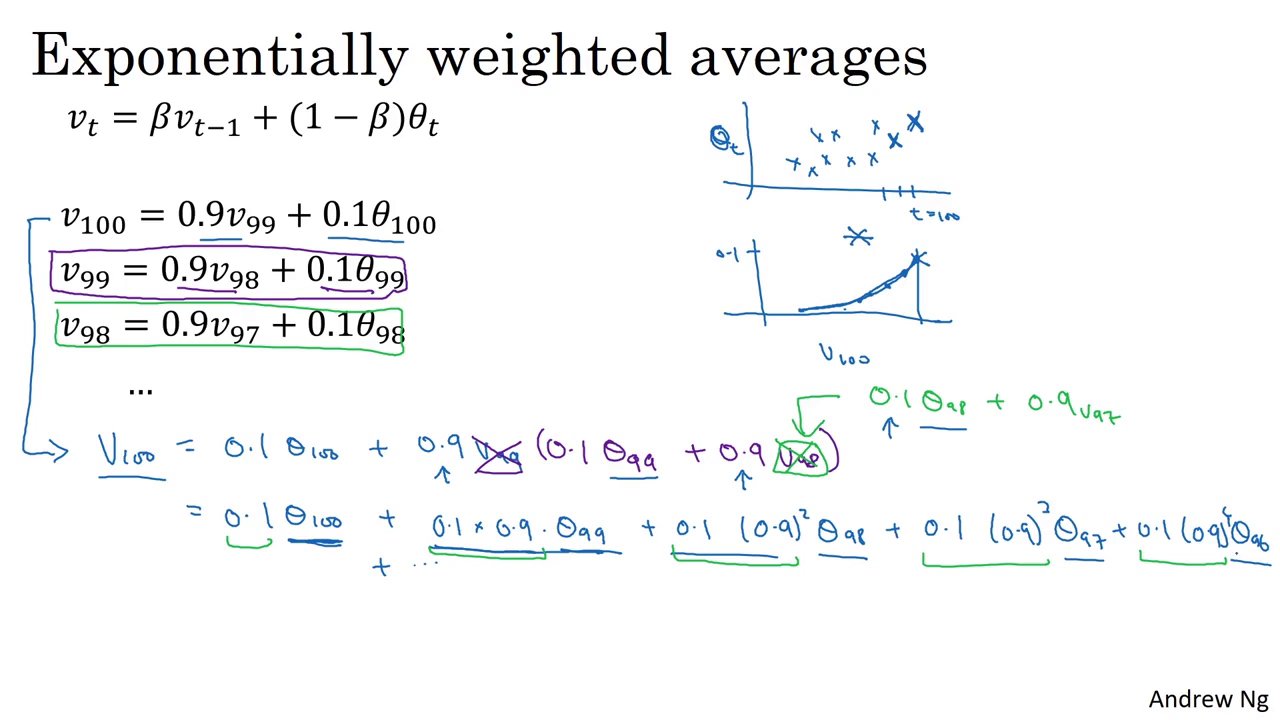 Exponentially weighted averages
v_t = βv_{t−1} + (1 − β)θ_t
θ_t
t=100
v_100 = 0.9v_99 + 0.1θ_100
v_99 = 0.9v_98 + 0.1θ_99
v_98 = 0.9v_97 + 0.1θ_98
...
0.1
V_100
0.1 θ_98 + 0.9 v_97
V_100 = 0.1 θ_100 + 0.9 v_99 (0.1 θ_99 + 0.9 v_98)
= 0.1 θ_100 + 0.1 × 0.9 · θ_99 + 0.1 (0.9)² θ_98 + 0.1 (0.9)³ θ_97 + 0.1 (0.9)⁴ θ_96
+ ...
Andrew Ng